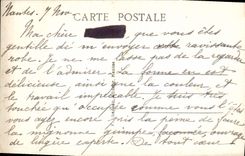 Nantes. 7 Nov.
CARTE POSTALE
Ma chère que vous êtes
gentille de m'envoyer cette ravissante
robe. Je ne me lasse pas de la regarder
et de l'admirer. La forme en est
délicieuse, ainsi que la couleur, et
le travail impeccable. Je suis très
touchée qu'occupée comme vous l'êtes
vous ayez encore pris la peine de faire
la mignonne guimpe, façonnée, ouvrage
de lingère experte. De tout cœur